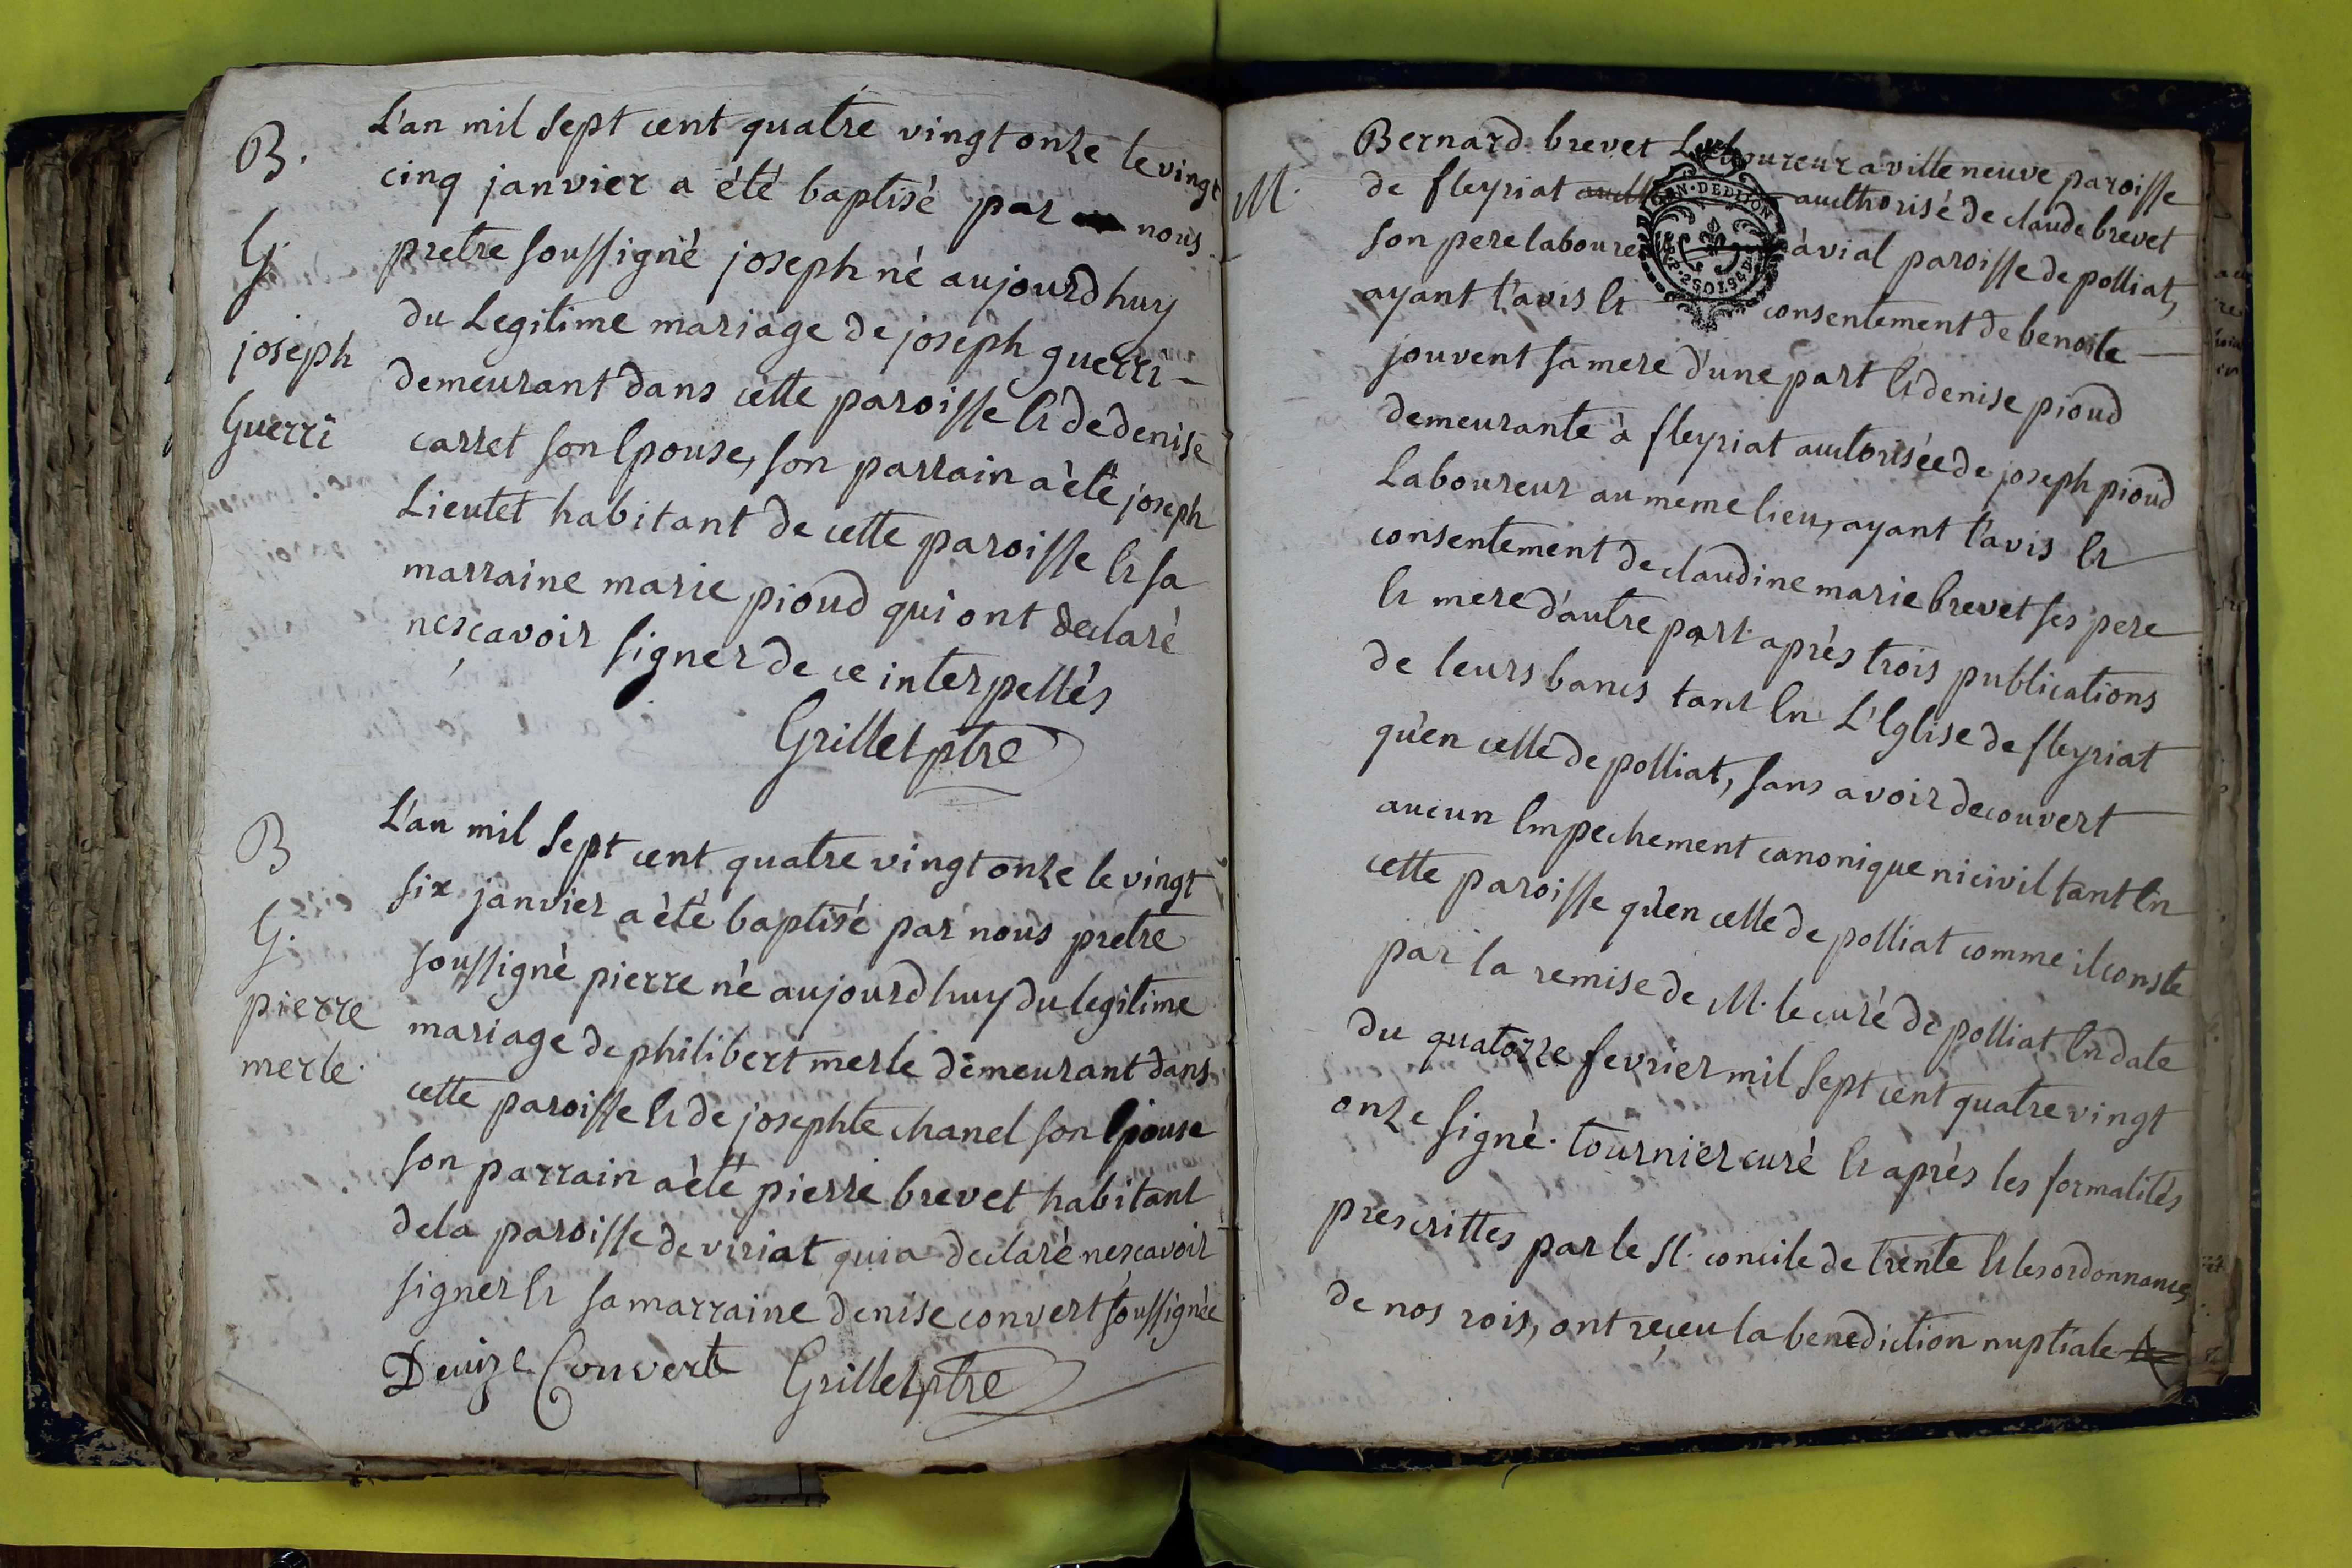 B.
G.
joseph
Guerri
L'an mil sept cent quatre vingt onze le vingt
cinq janvier a été baptisé par nous
pretre soussigné joseph né aujourdhuy
du Legitime mariage de joseph guerri
demeurant dans cette paroisse et de denise
carret son epouse, son parrain a èté joseph
Lieutet habitant de cette paroisse et sa
marraine marie pioud qui ont declaré
nesçavoir signer de ce interpellés
Grillet ptre
B
G.
pierre
merle.
L'an mil sept cent quatre vingt onze le vingt
six janvier a èté baptisé par nous pretre
soussigné pierre né aujourdhuy du legitime
mariage de philibert merle demeurant dans
cette paroisse et de josephte chanel son epouse
son parrain a èté pierre brevet habitant
de la paroisse de viriat qui a declaré nescavoir
signer et sa marraine denise convert soussignée
Denize Convert Grillet ptre
M.
Bernard brevet Laboureur a villeneuve paroisse
de fleyriat aucthorisé de claude brevet
son pere laboureur à vial paroisse de polliat,
ayant l'avis et consentement de benoite
jouvent sa mere d'une part et denise pioud
demeurante à fleyriat autorisée de joseph pioud
Laboureur au meme lieu, ayant l'avis et
consentement de claudine marie brevet ses pere
et mere d'autre part après trois publications
de leurs bancs tant en L'Eglise de fleyriat
qu'en celle de polliat, sans avoir decouvert
aucun empechement canonique ni civil tant en
cette paroisse qu'en celle de polliat comme il conste
par la remise de M. le curé de polliat en date
du quatorze fevrier mil sept cent quatre vingt
onze signé. tournier curé et après les formalités
prescrittes par le st. concile de trente et les ordonnances
de nos rois, ont reçeu la benediction nuptiale